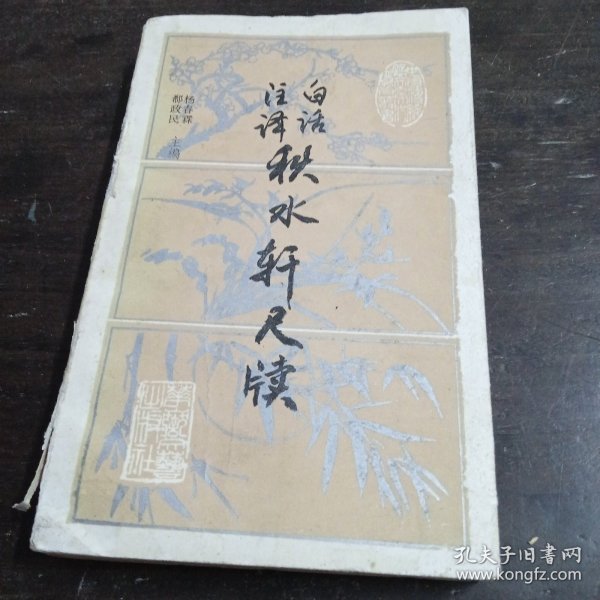 白话
注译
秋水轩尺牍
杨春霖
都政民 主编
华岳文艺
出版社
孔夫子旧书网
www.kongfz.com